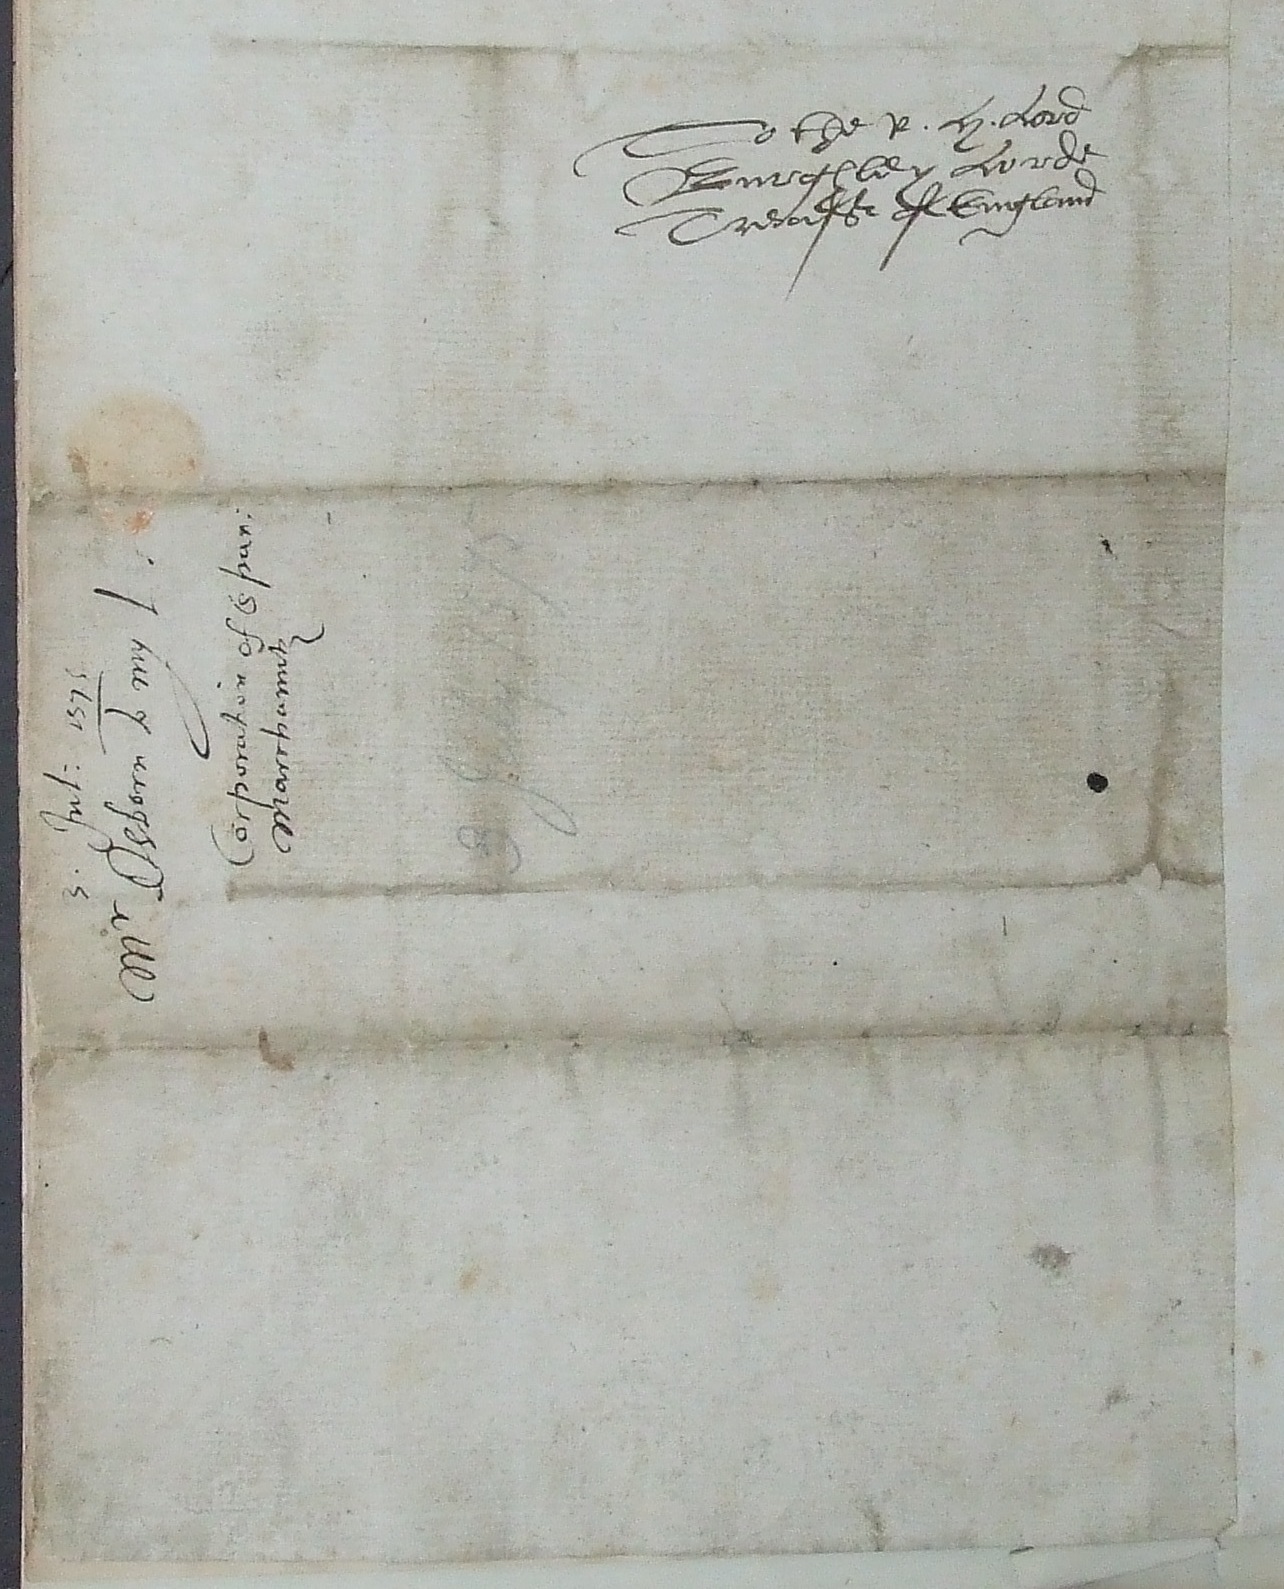 To the r. h. Lord
Burghley Lorde
Treasr of England
3. July: 1575
Mr Osborn
Corporation of Span:
Marchantz